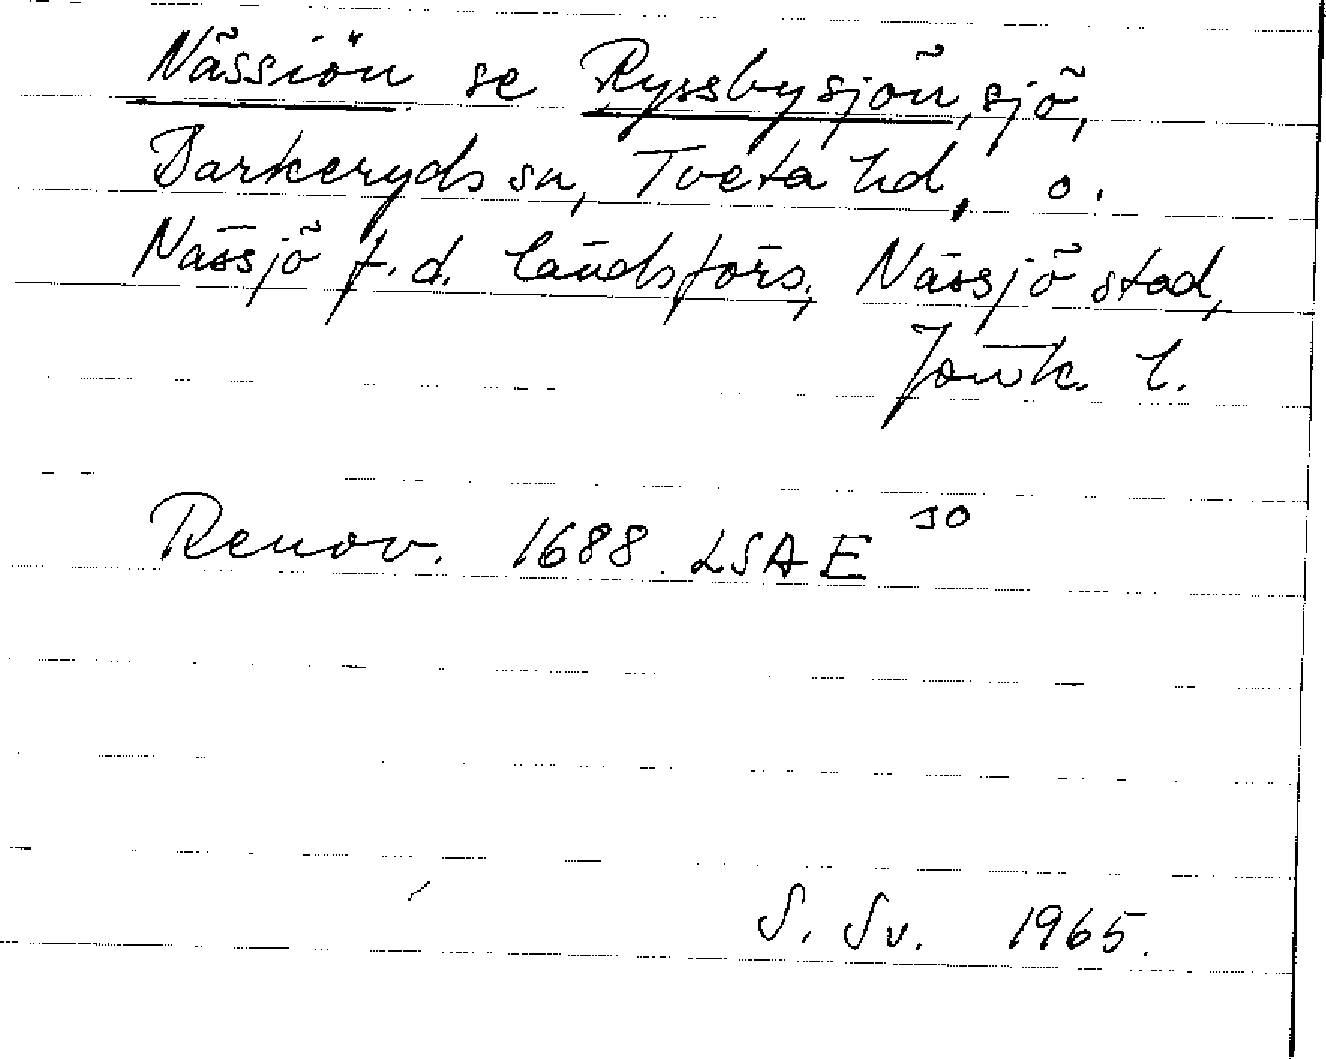 Nässiön se Ryssbysjön, sjö,
Barkeryds sn, Tveta hd, o.
Nässjö f.d. landsförs, Nässjö stad,
Jönk. l.
Renov. 1688 LSA E 10
S. Sv. 1965.